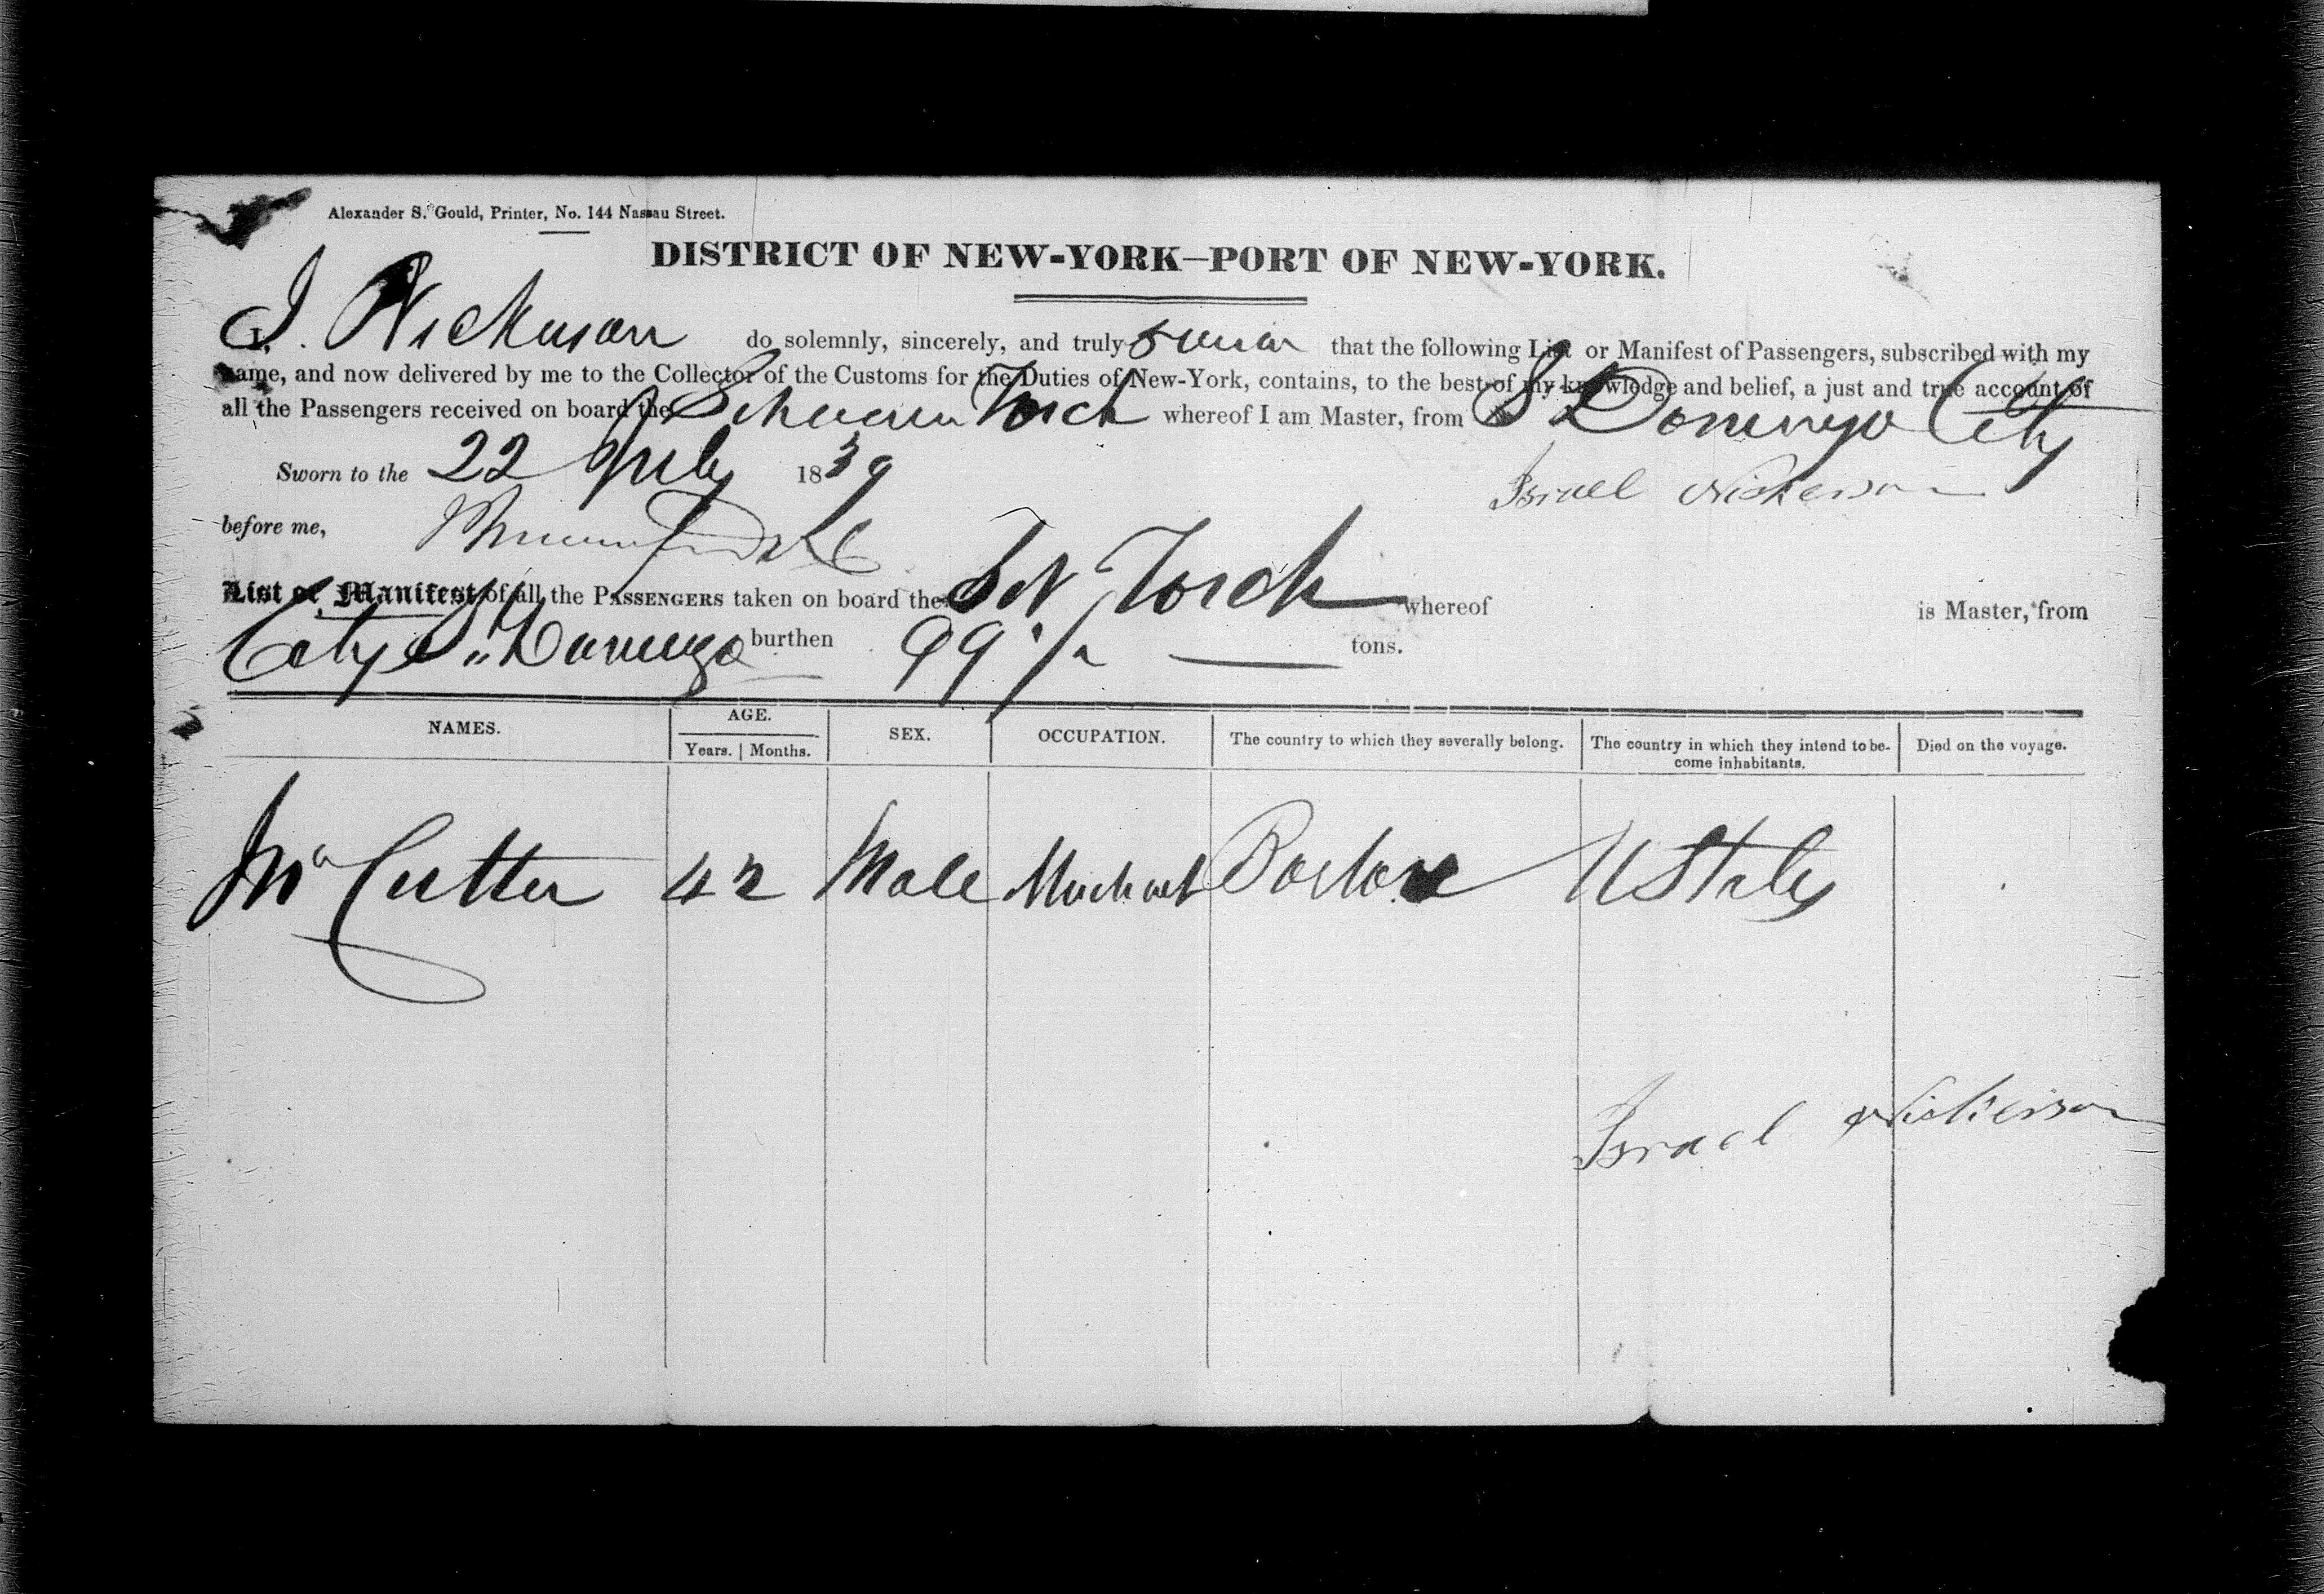 Alexander S. Gould, Printer, No. 144 Nassau Street.
DISTRICT OF NEW-YORK—PORT OF NEW-YORK.
I, J. Nickerson do solemnly, sincerely, and truly swear that the following List or Manifest of Passengers, subscribed with my
name, and now delivered by me to the Collector of the Customs for the Duties of New-York, contains, to the best of my knowledge and belief, a just and true account of
all the Passengers received on board the Schooner Torch whereof I am Master, from St Domingo City
Sworn to the 22 July 1839
Israel Nickerson
before me,
List or Manifest of all the PASSENGERS taken on board the Sch Torch whereof is Master, from
City St Domingo burthen 99 tons.
NAMES. AGE. SEX. OCCUPATION. The country to which they severally belong. The country in which they intend to be- Died on the voyage.
Years. Months. come inhabitants.
Mr Cutter 42 Male Merchant Boston U States
Israel Nickerson